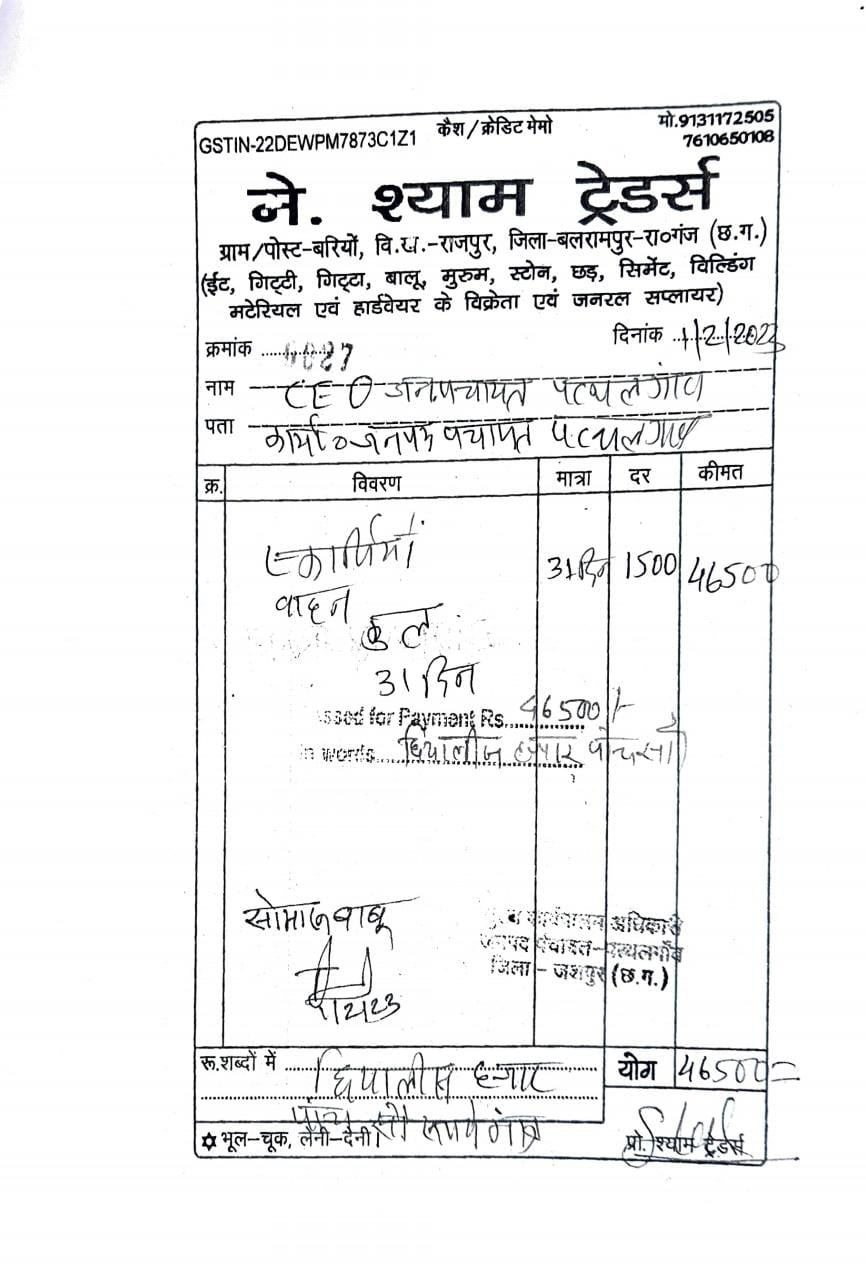 GSTIN-22DEWPM7873C1Z1 कैश/क्रेडिट मेमो मो.9131172505
7610650108
मे. श्याम ट्रेडर्स
ग्राम/पोस्ट-बरियों, वि.ख.-राजपुर, जिला-बलरामपुर-रा०गंज (छ.ग.)
(ईट, गिट्टी, गिट्टा, बालू, मुरुम, स्टोन, छड़, सिमेंट, विल्डिंग
मटेरियल एवं हार्डवेयर के विक्रेता एवं जनरल सप्लायर)
क्रमांक दिनांक 1/2/2023
नाम CEO जनपंचायत पत्थलगांव
पता कार्या० जनपद पंचायत पत्थलगांव
क्र. विवरण मात्रा दर कीमत
31 दिन 1500 46500
वाहन
कुल
31 दिन
ssed for Payment Rs. 46500/-
in words छियालीज हजार पांच सौ
कार्यपालन अधिकारी
जनपद पंचायत-पत्थलगाँव
जिला - जशपुर (छ.ग.)
रू.शब्दों में छियालीस हजार योग 46500=
पांच सौ रूपये मात्र
✡ भूल-चूक, लेनी-देनी। प्रो. श्याम ट्रेडर्स